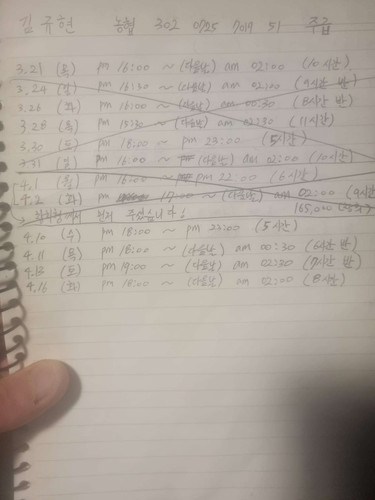 김규현 농협 302 0725 7019 51 주급
3.21 (목) pm 16:00 ~ (다음날) am 02:00 (10시간)
3.24 (일) pm 16:30 ~ (다음날) am 02:00 (9시간 반)
3.26 (화) pm 16:00 ~ (다음날) am 00:30 (8시간 반)
3.28 (목) pm 15:30 ~ (다음날) am 02:30 (11시간)
3.30 (토) pm 18:00 ~ pm 23:00 (5시간)
3.31 (일) pm 16:00 ~ (다음날) am 02:00 (10시간)
4.1 (월) pm 16:00 ~ pm 22:00 (6시간)
4.2 (화) pm 17:00 ~ (다음날) am 02:00 (9시간
먼저 주셨습니다! 165,000
4.10 (수) pm 18:00 ~ pm 23:00 (5시간)
4.11 (목) pm 18:00 ~ (다음날) am 00:30 (6시간 반)
4.13 (토) pm 19:00 ~ (다음날) am 02:30 (7시간 반)
4.16 (화) pm 18:00 ~ (다음날) am 02:00 (8시간)